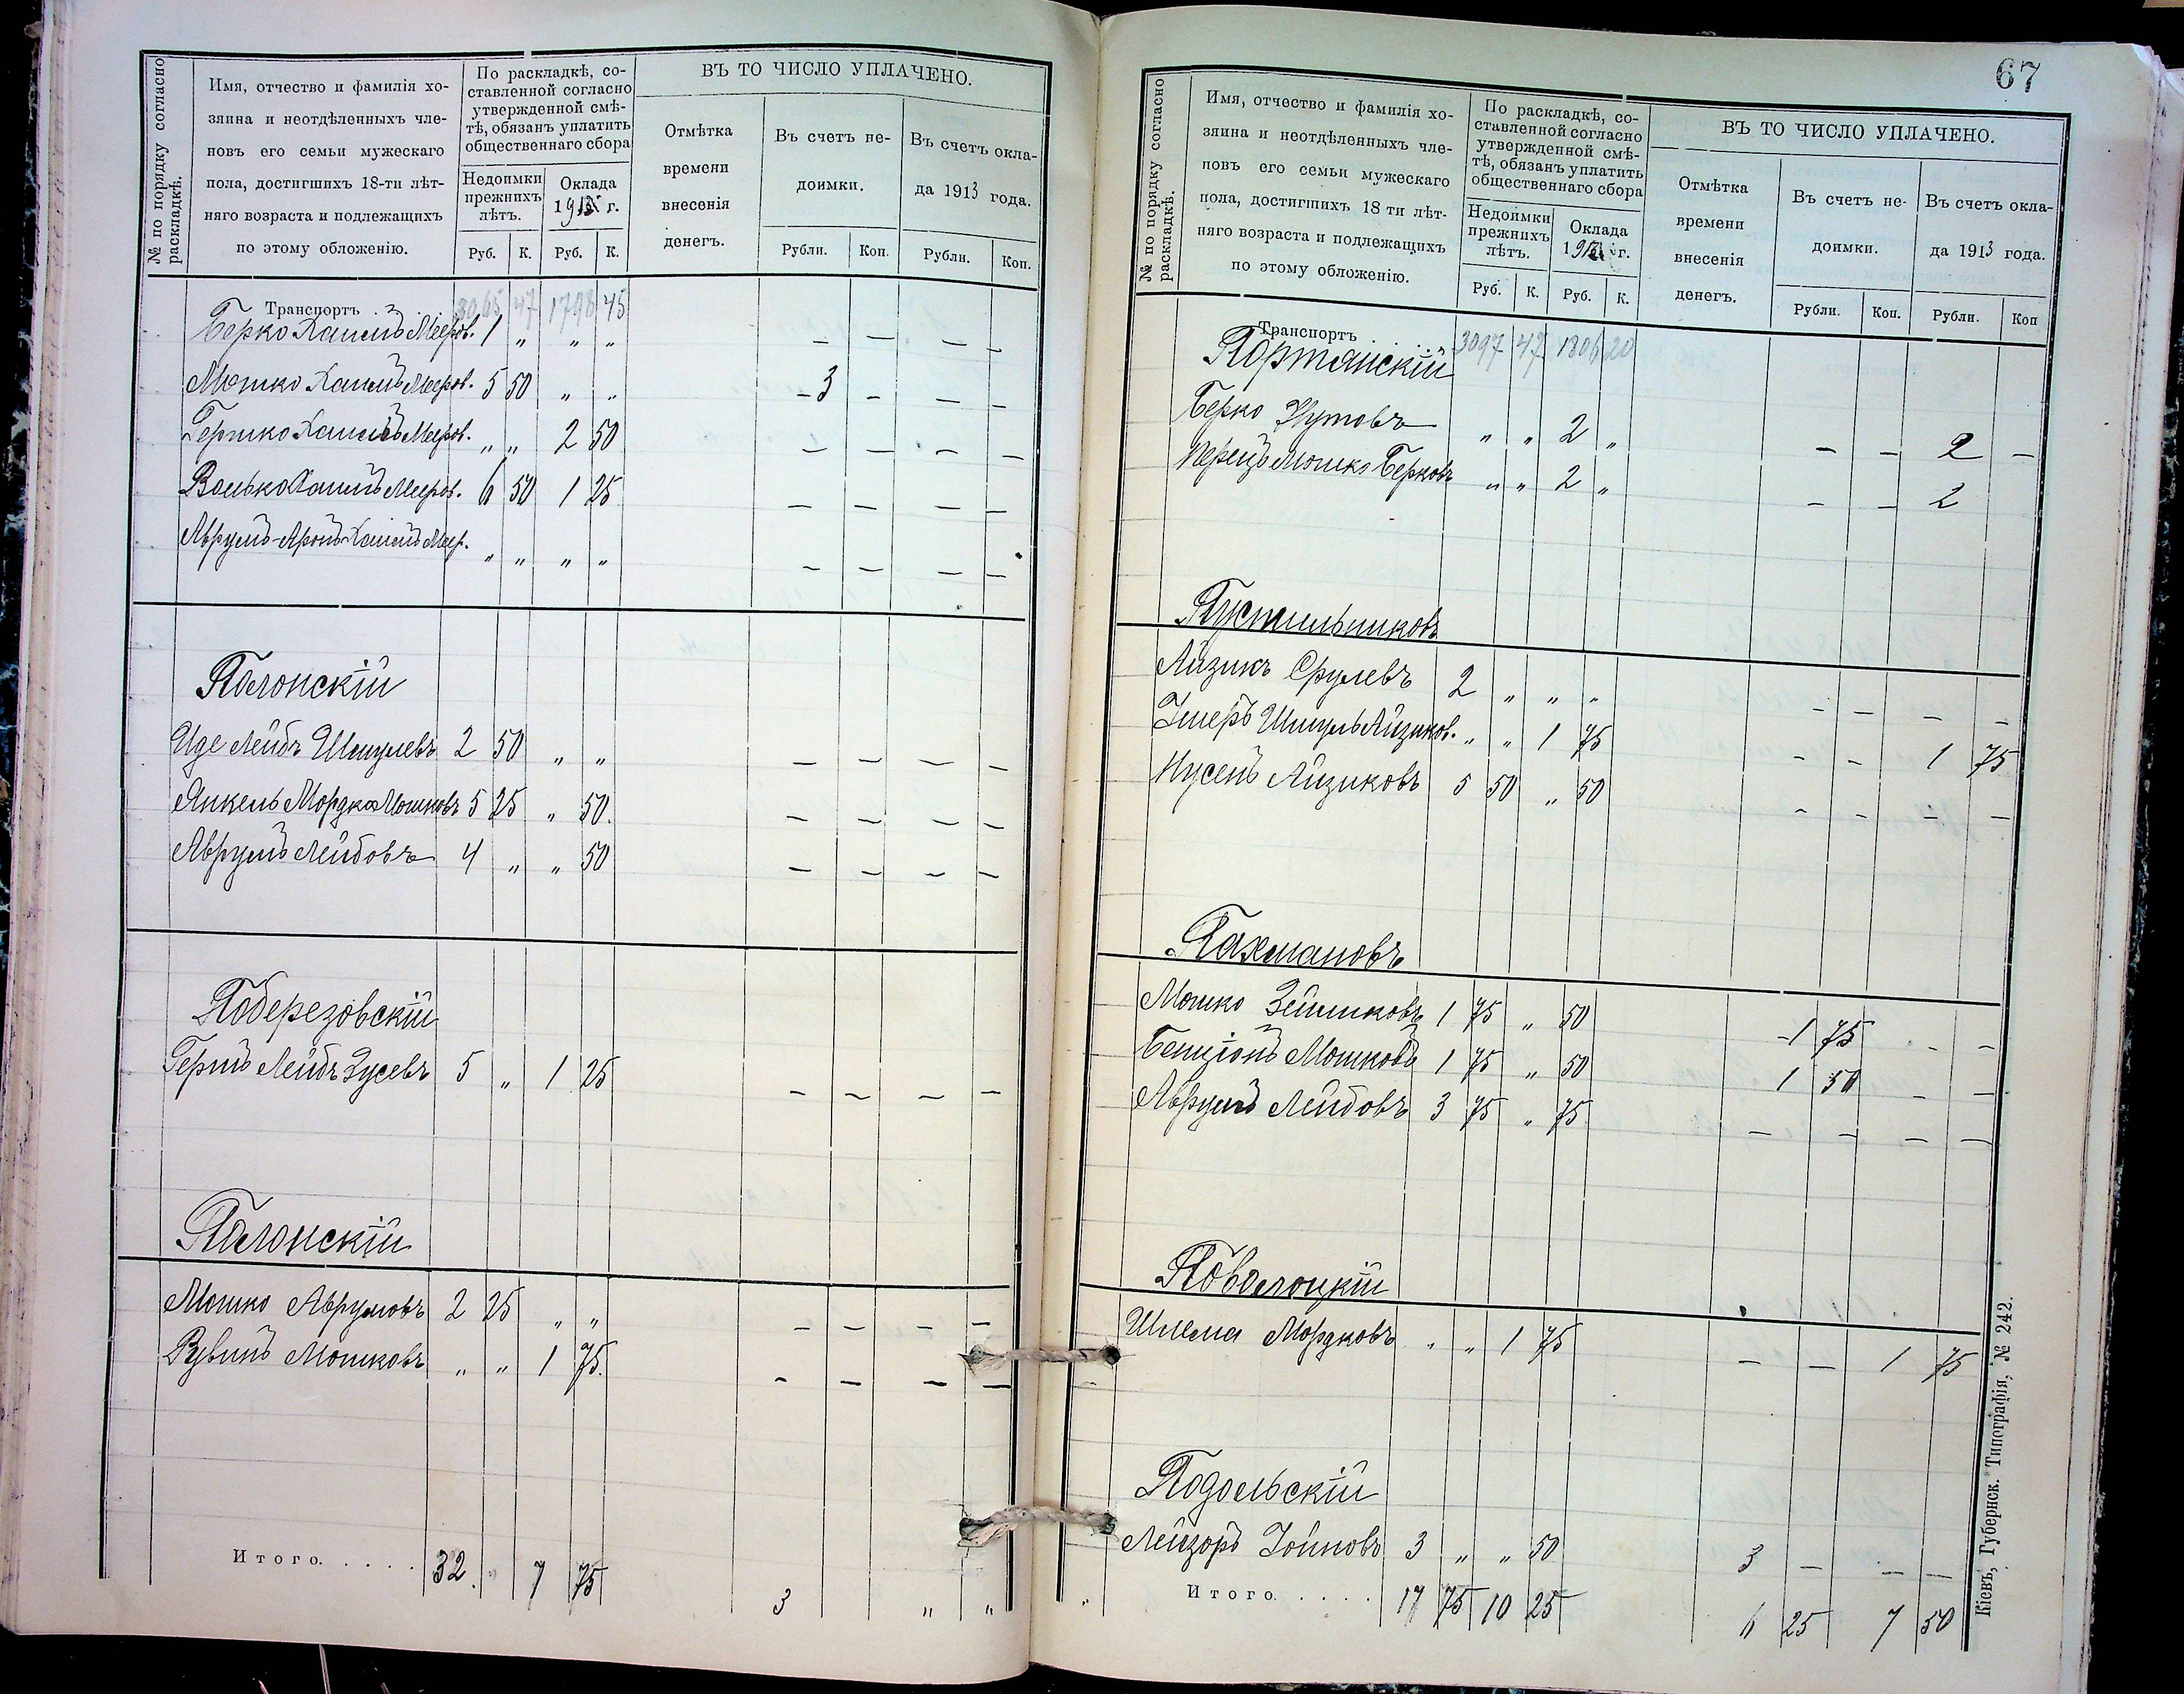 № по порядку согласно раскладкѣ.
Имя, отчество и фамилія хо-
зяина и неотдѣленныхъ чле-
новъ его семьи мужескаго
пола, достигшихъ 18-ти лѣт-
няго возраста и подлежащихъ
по этому обложенію.
По раскладкѣ, со-
ставленной согласно
утвержденной смѣ-
тѣ, обязанъ уплатить
общественнаго сбора
Недоимки
прежнихъ
лѣтъ.
Оклада
г.
Руб. К. Руб. К.
ВЪ ТО ЧИСЛО УПЛАЧЕНО.
Отмѣтка
времени
внесенія
денегъ.
Въ счетъ не-
доимки.
Въ счетъ окла-
да 1913 года.
Рубли. Коп. Рубли. Коп.
Транспортъ . . . . 3065 47 1798 45
Берко Хаимъ Мееров. 1 „ „ „ — — — —
Мошко Хаимъ Мееров. 5 50 „ „ — 3 — — —
Гершко Хаимъ Мееров. „ „ 2 50 — — — —
Волько Хаимъ Мееров. 6 50 1 25 — — — —
Аврумъ-Аронъ Хаимъ Меер. „ „ „ „ — — — —
Полонскій
Иде Лейбъ Шмулевъ 2 50 „ „ — — — —
Янкель Мордко Мошковъ 5 25 „ 50. — — — —
Аврумъ Лейбовъ 4 „ „ 50 — — — —
Поберезовскій
Гершъ Лейбъ Зусевъ 5 „ 1 25 — — — —
Полонскій
Мошко Аврумовъ 2 25 „ „ — — — —
Рувинъ Мошковъ „ „ 1 75. — — — —
Итого. . . . . 32. „ 7 75 3 „ „
67
№ по порядку согласно раскладкѣ.
Имя, отчество и фамилія хо-
зяина и неотдѣленныхъ чле-
новъ его семьи мужескаго
пола, достигшихъ 18 ти лѣт-
няго возраста и подлежащихъ
по этому обложенію.
По раскладкѣ, со-
ставленной согласно
утвержденной смѣ-
тѣ, обязанъ уплатить
общественнаго сбора
Недоимки
прежнихъ
лѣтъ.
Оклада
г.
Руб. К. Руб. К.
ВЪ ТО ЧИСЛО УПЛАЧЕНО.
Отмѣтка
времени
внесенія
денегъ.
Въ счетъ не-
доимки.
Въ счетъ окла-
да 1913 года.
Рубли. Коп. Рубли. Коп
Транспортъ . . . . . 3097 47 1806 20
Портянскій
Берко Нутовъ „ „ 2 „ — — 2 —
Перецъ Мошко Берковъ „ „ 2 „ — — 2
Пустильниковъ
Айзикъ Срулевъ 2 „ „ „ — — — —
Шмуль Айзиков. „ „ 1 75 — — 1 75
Нусенъ Айзиковъ 5 50 „ 50 — — — —
Пахмановъ
Мошко Зейликовъ 1 75 „ 50 — 1 75 — —
Бенціонъ Мошковъ 1 75 „ 50 1 50 — —
Аврумъ Лейбовъ 3 75 „ 75 — — — —
Поволоцкій
Шлема Мордковъ „ „ 1 75 — — 1 75
Подольскій
Лейзоръ Іойновъ 3 „ „ 50 3 — — —
Итого. . . . . 17 75 10 25 6 25 7 50
Кіевъ, Губернск. Типографія, № 242.